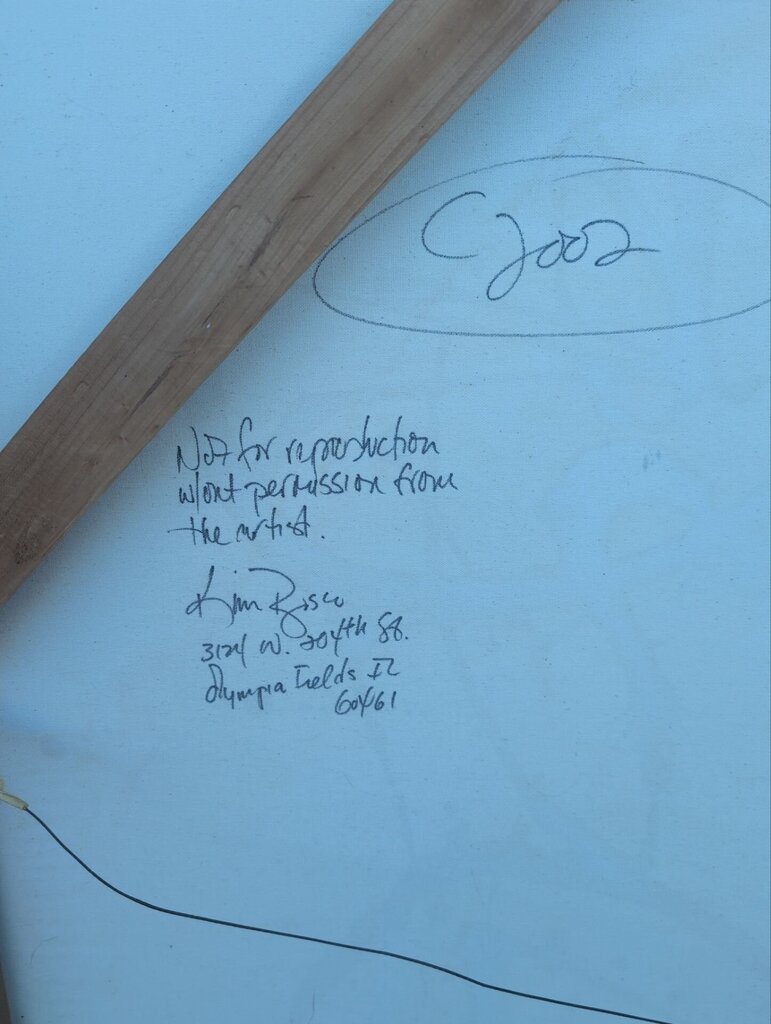 C 2002
Not for reproduction
w/out permission from
the artist.
Kim
W. 204th St.
Olympia Fields IL
60461